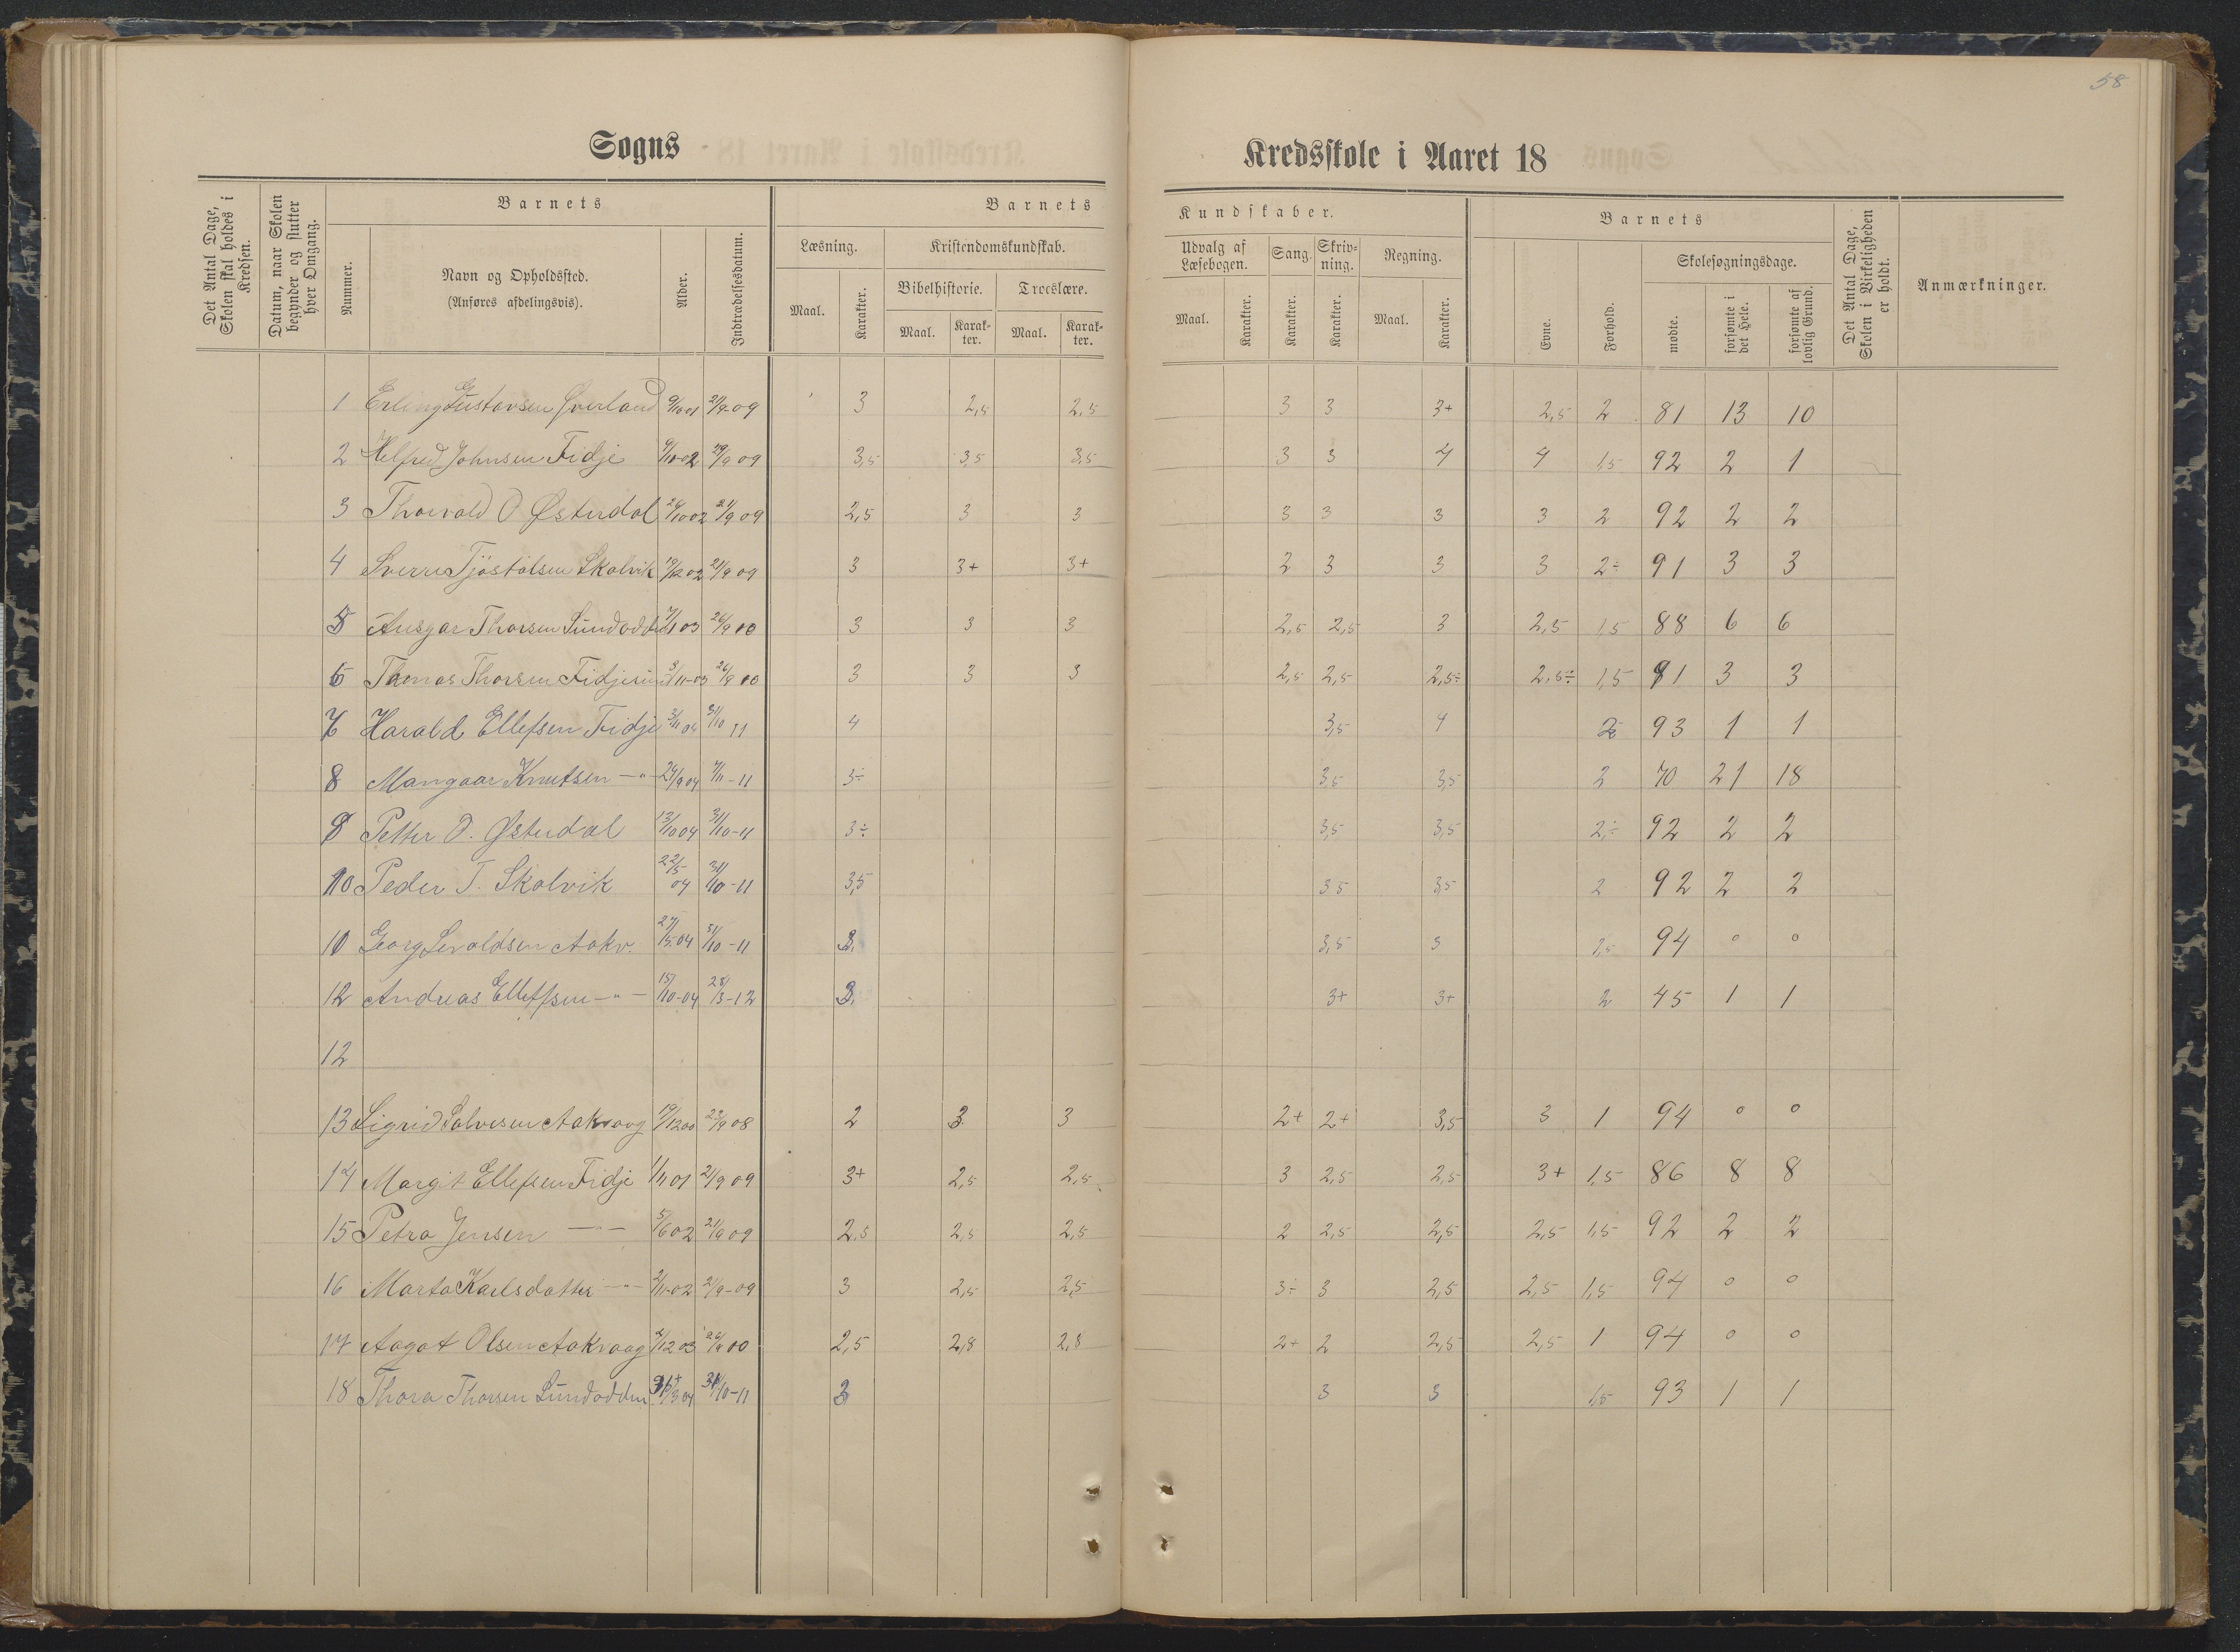 58
Sogns
Kredsskole i Aaret 18
Det Antal Dage, Skolen skal holdes i Kredsen.
Datum, naar Skolen begynder og slutter hver Omgang.
Barnets
Nummer.
Navn og Opholdssted.
(Anføres afdelingsvis).
Alder.
Indtrædelsesdatum.
Barnets
Læsning.
Maal.
Karakter.
Kristendomskundskab.
Bibelhistorie.
Maal.
Karak-
ter.
Troeslære.
Maal.
Karak-
ter.
Kundskaber.
Udvalg af
Læsebogen.
Maal.
Karakter.
Sang.
Karakter.
Skriv-
ning.
Karakter.
Regning.
Maal.
Karakter.
Barnets
Evne.
Forhold.
Skolesøgningsdage.
mødte.
forsømte i
det Hele.
forsømte af
lovlig Grund.
Det Antal Dage,
Skolen i Virkeligheden
er holdt.
Anmærkninger.
1 Erling Gustavsen Øverland 9/10 01 21/9-09 3 2,5 2,5 3 3 3+ 2,5 2 81 13 10
2 Helfred Johnsen Fidje 9/10-02 29/9 09 3,5 3,5 3,5 3 3 4 4 1,5 92 2 1
3 Thorvald O Østerdal 24/10 02 21/9 09 2,5 3 3 3 3 3 3 2 92 2 2
4 Sverre Tjøstølsen Skalvik 19/12 02 21/9 09 3 3+ 3+ 2 3 3 3 2÷ 91 3 3
5 Ansgar Thorsen Sundodden 7/1 03 26/9 10 3 3 3 2,5 2,5 3 2,5 1,5 88 6 6
6 Thomas Thorsen 3/11-03 26/9 10 3 3 3 2,5 2,5 2,5÷ 2,5÷ 1,5 91 3 3
7 Harald Ellefsen Fidje 3/11 04 31/10 11 4 3,5 4 2 93 1 1
8 Mangaar Knutsen —"— 24/9 04 7/11-11 3÷ 3,5 3,5 2 70 21 18
9 Petter O. Østerdal 13/10 04 31/10-11 3÷ 3,5 3,5 2÷ 92 2 2
10 Peder T. Skalvik 22/5 04 31/10-11 3,5 3,5 3,5 2 92 2 2
10 Georg Sevaldsen Aakv. 27/5-04 31/10-11 3. 3,5 3 1,5 94 0 0
12 Andreas Elleffsen —"— 15/10-04 28/3-12 3. 3+ 3+ 2 45 1 1
12
13 Sigrid Salvesen Aakvaag 19/12 00 23/9 08 2 3 3 2+ 2+ 3,5 3 1 94 0 0
14 Margit Ellefsen Fidje 1/11 01 21/9 09 3+ 2,5 2,5 3 2,5 2,5 3+ 1,5 86 8 8
15 Petra Jensen —"— 5/6 02 21/9 09 2,5 2,5 2,5 2 2,5 2,5 2,5 1,5 92 2 2
16 Marta Karlsdatter —"— 2/11-02 21/9-09 3 2,5 2,5 3÷ 3 2,5 2,5 1,5 94 0 0
17 Aagot Olsen Aakvaag 2/12 03 26/9 10 2,5 2,8 2,8 2+ 2 2,5 2,5 1 94 0 0
18 Thora Thorsen Sundodden 3 04 31/10-11 3 3 3 1,5 93 1 1